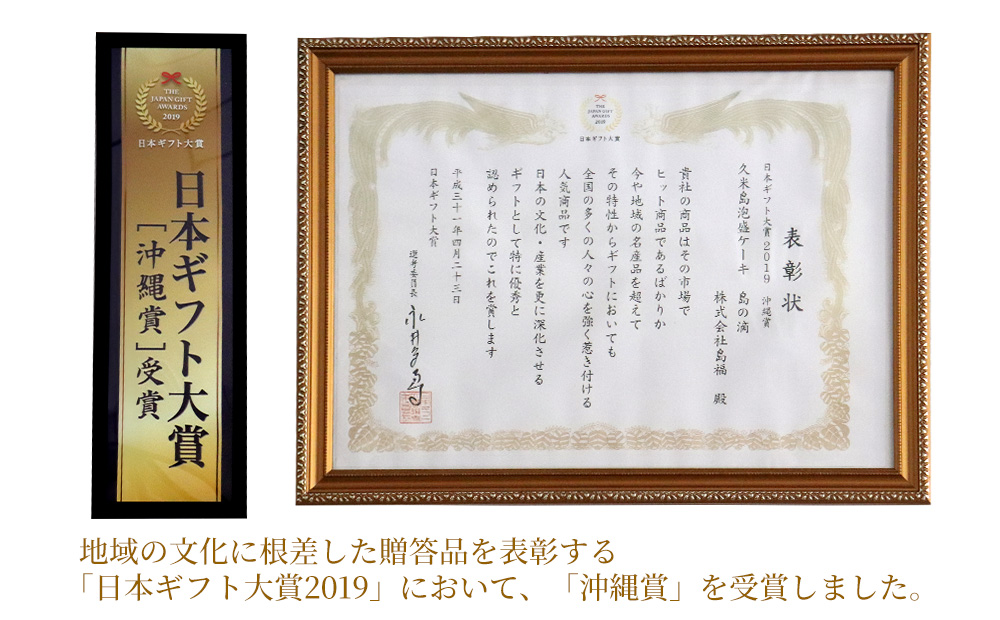 THE
JAPAN GIFT
AWARDS
2019
日本ギフト大賞
日本ギフト大賞
［沖縄賞］受賞
THE
JAPAN GIFT
AWARDS
2019
日本ギフト大賞
表彰状
日本ギフト大賞2019 沖縄賞
久米島泡盛ケーキ 島の滴
株式会社島福 殿
貴社の商品はその市場で
ヒット商品であるばかりか
今や地域の名産品を超えて
その特性からギフトにおいても
全国の多くの人々の心を強く惹き付ける
人気商品です
日本の文化・産業を更に深化させる
ギフトとして特に優秀と
認められたのでこれを賞します
平成三十一年四月二十三日
日本ギフト大賞
選考委員長
地域の文化に根差した贈答品を表彰する
「日本ギフト大賞2019」において、「沖縄賞」を受賞しました。